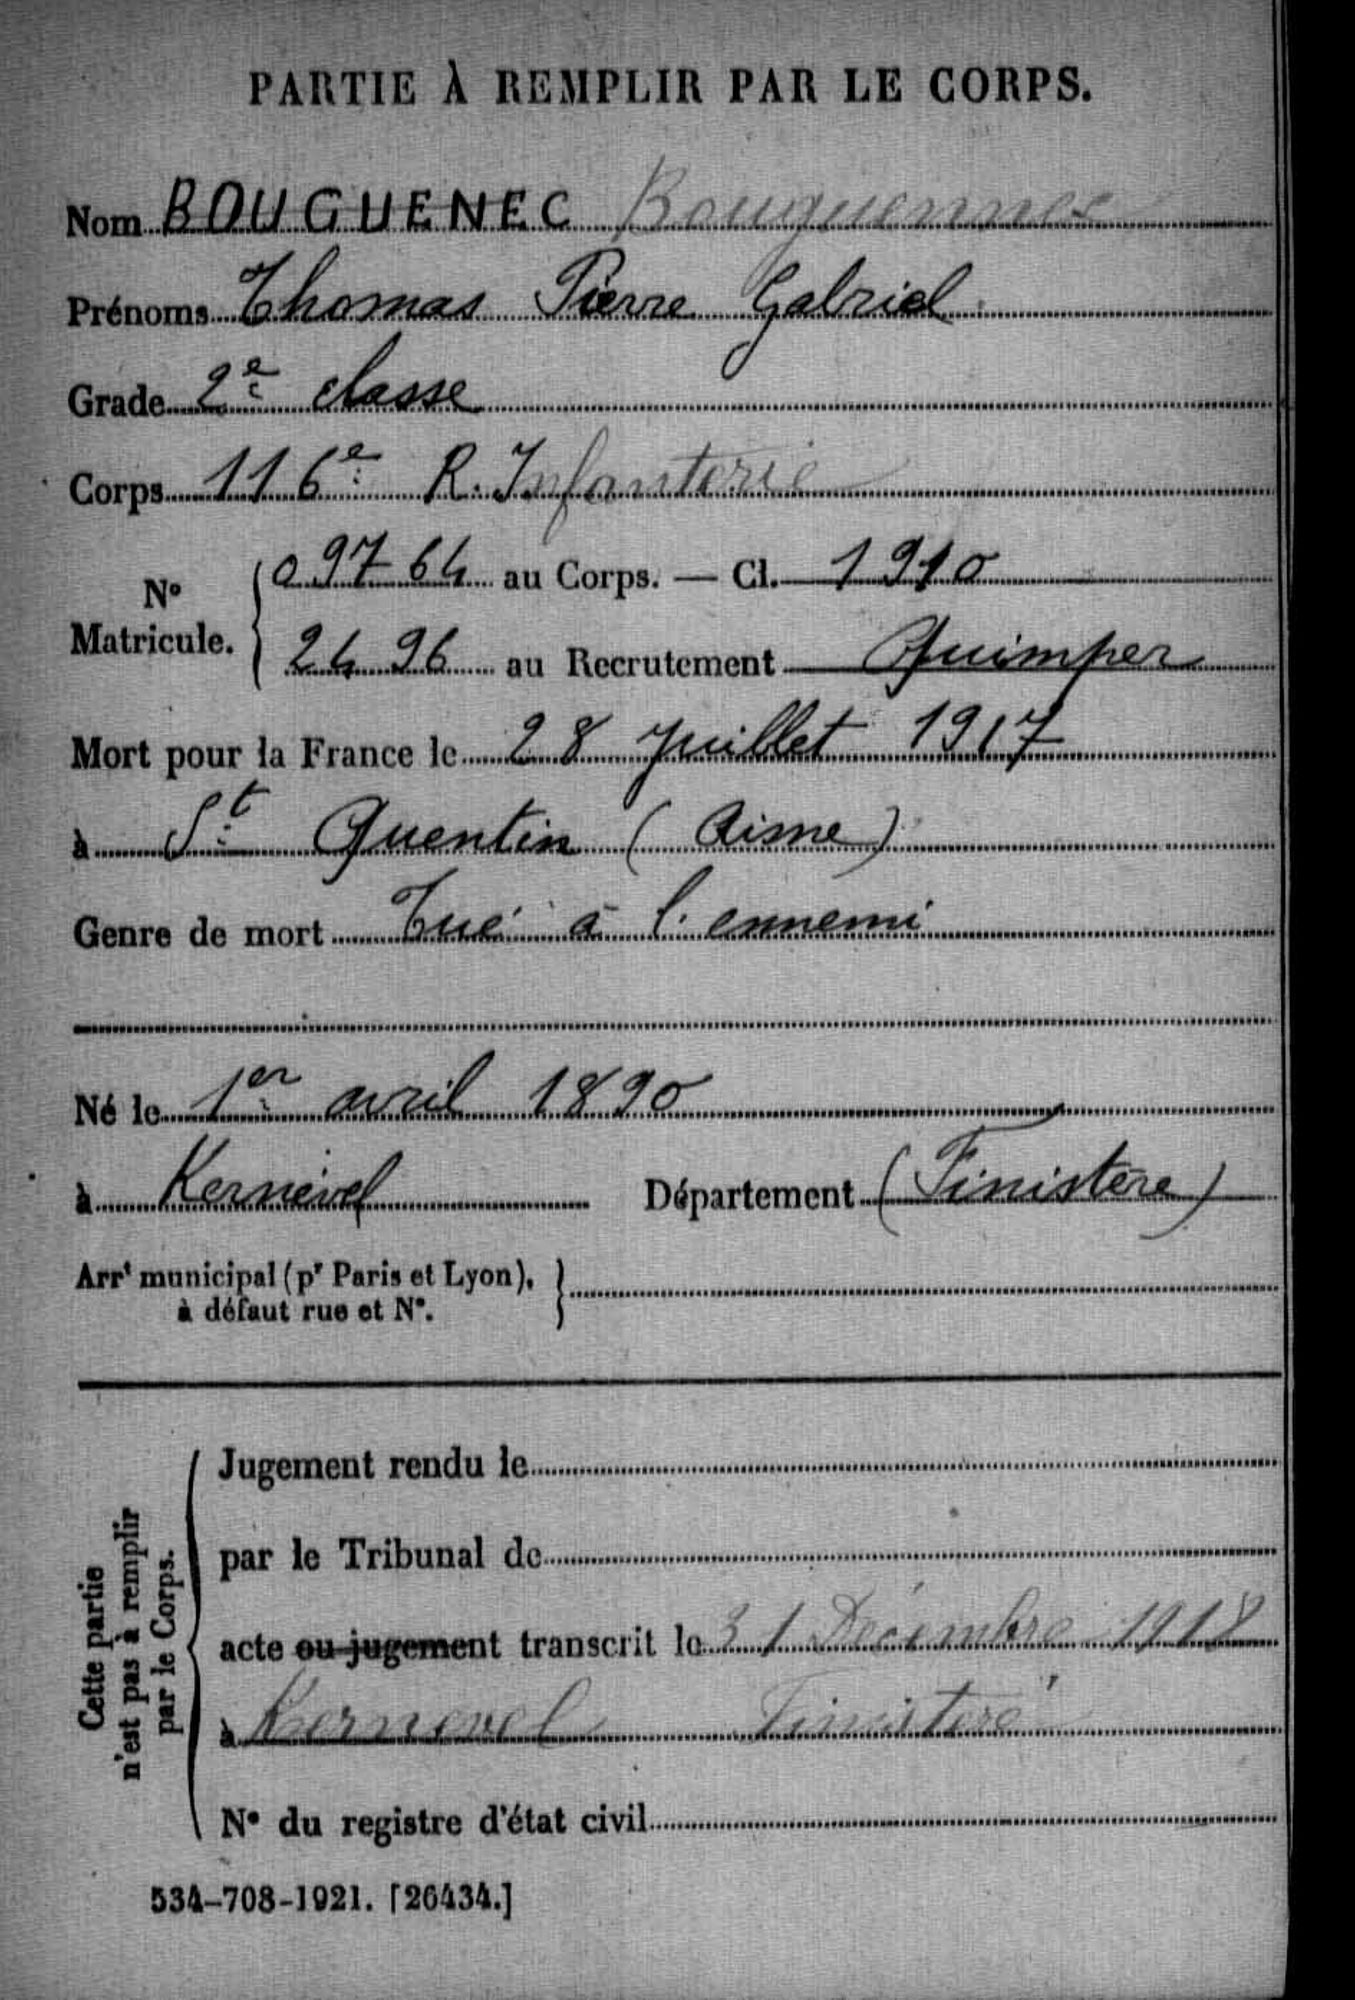 PARTIE À REMPLIR PAR LE CORPS.
Nom BOUGUENEC Bouguennec
Prénoms Thomas Pierre Gabriel
Grade 2e classe
Corps 116e R. Infanterie
No Matricule. { 09764 au Corps. — Cl. 1910
2496 au Recrutement Quimper
Mort pour la France le 28 juillet 1917
à St Quentin (Aisne)
Genre de mort Tué à l'ennemi
Né le 1er avril 1890
à Kernével Département (Finistère)
Arrt municipal (pr Paris et Lyon), }
à défaut rue et No.
Cette partie
n'est pas à remplir
par le Corps.
Jugement rendu le
par le Tribunal de
acte ou jugement transcrit le 31 Décembre 1918
à Kernevel Finistère
No du registre d'état civil
534-708-1921. [26434.]